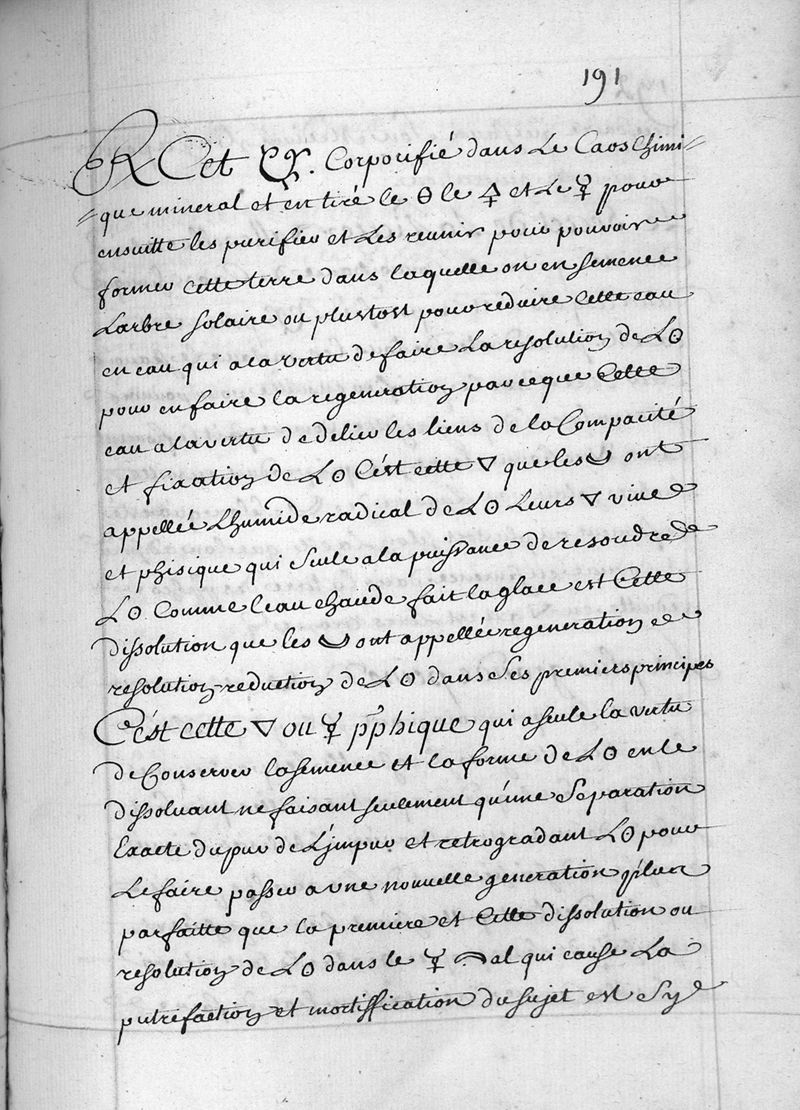 191
℞ Cet . Corporifié dans Le Caos Chimi=
=que mineral et en tiré le 🜔 le 🜍 et Le ☿ pour
ensuitte les purifier et Les reunir pour pouvoir
former cette terre dans laquelle on en semence
L'arbre solaire ou plustost pour reduire Cette eau
en eau qui a la vertu de faire La resolution de L☉
pour en faire la regeneration parceque Cette
eau a la vertu de delier les liens de la Compacité
et fixation de L☉ C'est cette 🜄 que les ont
appellée L'humide radical de L☉ Leurs 🜄 vive
et phisique qui seule a la puissance de resoudre
L☉ Comme l'eau chaude fait la glace est Cette
dissolution que les ont appellée regeneration
resolution reduction de L☉ dans ses premiers principes
C'est cette 🜄 ou ☿ pp̄hique qui a seule la vertu
de Conserver la semence et la forme de L☉ en le
dissoluant ne faisant seulement qu'une Separation
Exacte du pur de L'jmpur et retrogradant L☉ pour
Le faire passer a vne nouvelle generation
parfaitte que la premiere et Cette dissolution ou
resolution de L☉ dans le ☿ al qui cause La
putrefaction et mortiffication du sujet est Sy